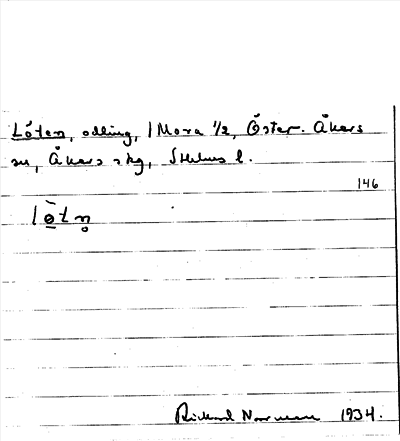 Löten, odling, 1 Mora 1/2, Öster-Åkers
sn, Åkers skg, Sthlms l.
146
lö̀tn̥
Rickard Norrman 1934.